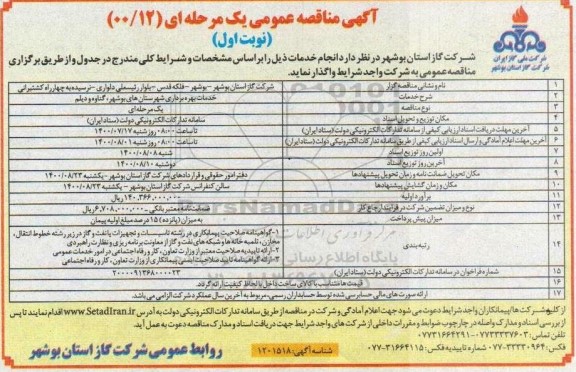 آگهی مناقصه عمومی یک مرحله ای (۰۰/۱۲)
(نوبت اول)
شرکت ملی گاز ایران
شرکت گاز استان بوشهر
شرکت گاز استان بوشهر در نظر دارد انجام خدمات ذیل را بر اساس مشخصات و شرایط کلی مندرج در جدول و از طریق برگزاری
مناقصه عمومی به شرکت واجد شرایط واگذار نماید.
۱ نام و نشانی مناقصه گزار شرکت گاز استان بوشهر - بوشهر - فلکه قدس - بلوار رئیسعلی دلواری - نرسیده به چهار راه کشتیرانی
۲ شرح خدمات خدمات بهره برداری شهرستان های بوشهر، گناوه و دیلم
۳ نوع مناقصه یک مرحله ای
۴ مکان توزیع و تحویل اسناد سامانه تدارکات الکترونیکی دولت (ستاد ایران)
۵ آخرین مهلت دریافت اسناد ارزیابی کیفی از سامانه تدارکات الکترونیکی دولت (ستاد ایران) تا ساعت ۰۸:۰۰ روز شنبه ۱۴۰۰/۰۷/۱۷
۶ آخرین مهلت اعلام آمادگی و ارسال اسناد ارزیابی کیفی از طریق سامانه تدارکات الکترونیکی دولت (ستاد ایران) تا ساعت ۰۸:۰۰ روز شنبه ۱۴۰۰/۰۸/۰۱
۷ اولین روز توزیع اسناد شنبه ۱۴۰۰/۰۸/۰۸
۸ آخرین روز توزیع اسناد دوشنبه ۱۴۰۰/۰۸/۱۰
۹ مکان تحویل ضمانت نامه و زمان تحویل پیشنهادها دفتر امور حقوقی و قراردادهای شرکت گاز استان بوشهر - یکشنبه ۱۴۰۰/۰۸/۲۳
۱۰ مکان و زمان گشایش پیشنهادها سالن کنفرانس شرکت گاز استان بوشهر - یکشنبه ۱۴۰۰/۰۸/۲۳
۱۱ برآورد اولیه ۱۴۰.۳۶۶.۰۰۰.۰۰۰ ریال
۱۲ نوع و میزان تضمین شرکت در فرآیند ارجاع کار ضمانت نامه معتبر بانکی - ۶.۷۰۸.۰۰۰.۰۰۰ ریال
۱۳ میزان پیش پرداخت به میزان (پانزده) ۱۵ درصد مبلغ اولیه پیمان
۱۴ رتبه بندی ۱- گواهینامه صلاحیت پیمانکاری در رشته تاسیسات و تجهیزات یا نفت و گاز در زیر رشته خطوط انتقال،
مخازن، تلمبه خانه ها و شبکه های نفت و گاز از معاونت برنامه ریزی و نظارت راهبردی
۲- ارائه تائیدیه صلاحیت معتبر از وزارت تعاون، کار و رفاه اجتماعی در امور خدمات عمومی
۳- ارائه گواهینامه تایید صلاحیت ایمنی پیمانکاری از وزارت تعاون، کار و رفاه اجتماعی
۱۵ شماره فراخوان در سامانه تدارکات الکترونیکی دولت (ستاد ایران) ۲۰۰۰۰۹۱۳۶۸۰۰۰۰۲۳
۱۶ قیمت ها متناسب با کالای ساخت داخل با لحاظ کیفیت ارائه گردد.
۱۷ ارائه صورت های مالی حسابرسی شده توسط حسابداران رسمی، مربوط به آخرین سال عملکرد شرکت الزامی می باشد.
از کلیه شرکت ها/پیمانکاران واجد شرایط دعوت می شود جهت اعلام آمادگی و شرکت در مناقصه از طریق سامانه تدارکات الکترونیکی دولت به آدرس www.SetadIran.ir اقدام نمایند تا پس
از بررسی اسناد و مدارک واصله در چارچوب ضوابط و مقررات داخلی از شرکت های واجد شرایط جهت دریافت اسناد و مدارک مناقصه دعوت به عمل آید.
تلفن: ۰۷۷۳۳۳۳۷۶۰۳-۰۷۷۳۱۶۶۴۲۹۱
فکس: ۳۳۳۳۰۹۶۴-۰۷۷ شماره تاییدیه فکس: ۳۱۶۶۴۱۱۵-۰۷۷
شناسه آگهی: ۱۲۰۱۵۱۸
روابط عمومی شرکت گاز استان بوشهر